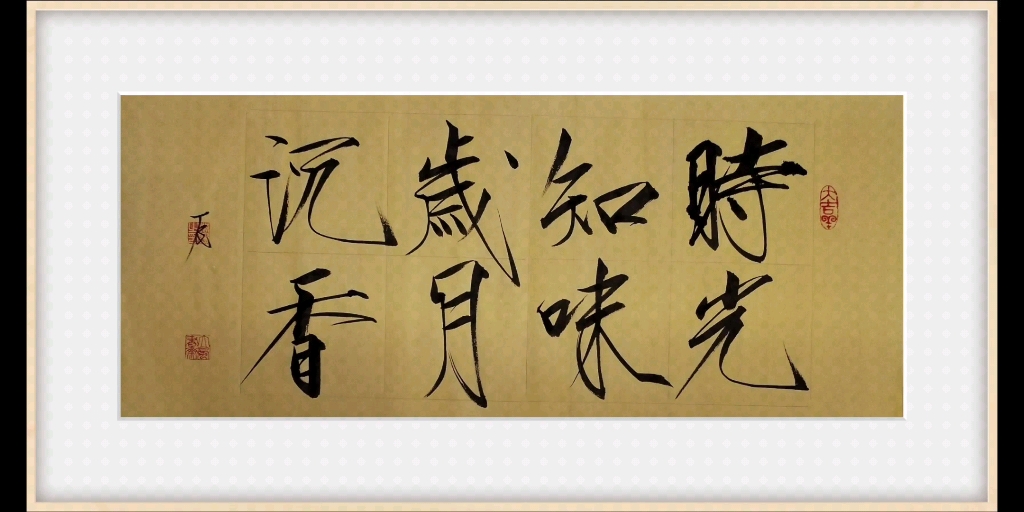 時光
知味
歲月
沉香
大吉